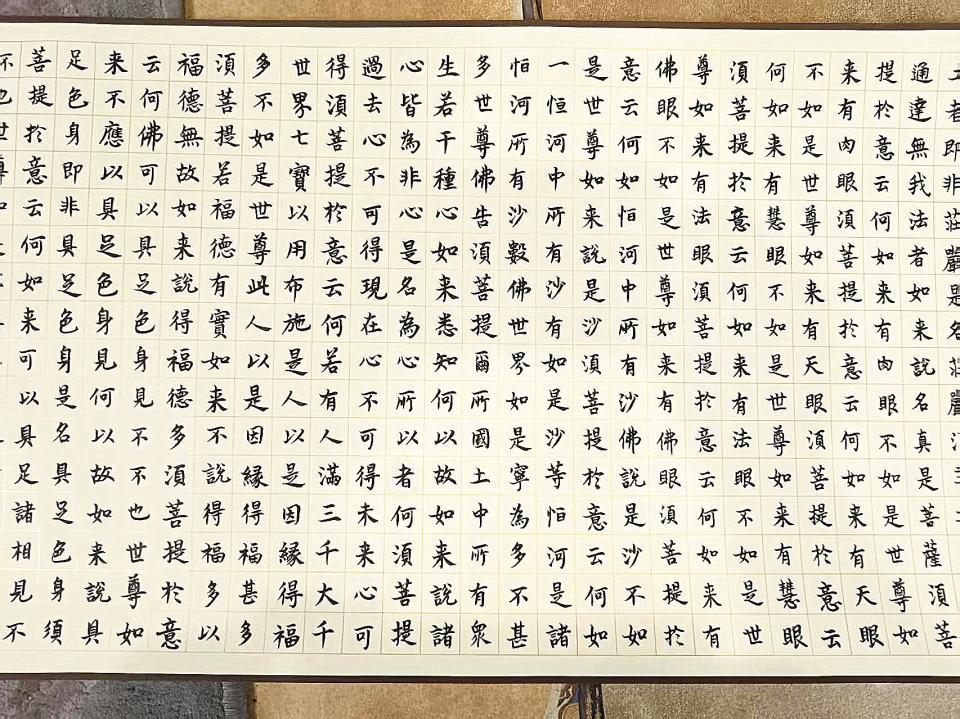 者即非莊嚴是名莊嚴
通達無我法者如来說名真是菩薩須菩
提於意云何如来有肉眼不如是世尊如
来有肉眼須菩提於意云何如来有天眼
不如是世尊如来有天眼須菩提於意云
何如来有慧眼不如是世尊如来有慧眼
須菩提於意云何如来有法眼不如是世
尊如来有法眼須菩提於意云何如来有
佛眼不如是世尊如来有佛眼須菩提於
意云何如恒河中所有沙佛說是沙不如
是世尊如来說是沙須菩提於意云何如
一恒河中所有沙有如是沙等恒河是諸
恒河所有沙數佛世界如是寧為多不甚
多世尊佛告須菩提爾所國土中所有眾
生若干種心如来悉知何以故如来說諸
心皆為非心是名為心所以者何須菩提
過去心不可得現在心不可得未来心可
得須菩提於意云何若有人滿三千大千
世界七寶以用布施是人以是因緣得福
多不如是世尊此人以是因緣得福甚多
須菩提若福德有寶如来不說得福多以
福德無故如来說得福德多須菩提於意
云何佛可以具足色身見不不也世尊如
来不應以具足色身見何以故如来說具
足色身即非具足色身是名具足色身須
菩提於意云何如来可以具足諸相見不
不也世尊如